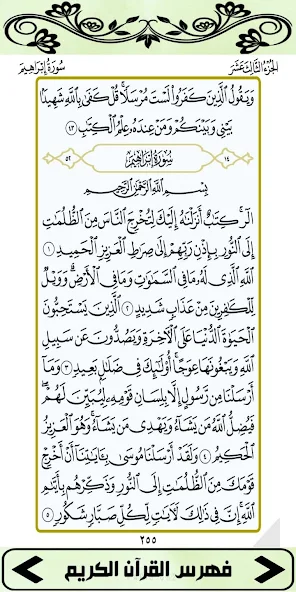 سُورَةُ إِبْرَاهِيم الجُزْءُ الثَّالِثَ عَشَرَ
وَيَقُولُ ٱلَّذِينَ كَفَرُوا۟ لَسْتَ مُرْسَلًا ۚ قُلْ كَفَىٰ بِٱللَّهِ شَهِيدًۢا
بَيْنِى وَبَيْنَكُمْ وَمَنْ عِندَهُۥ عِلْمُ ٱلْكِتَٰبِ ٤٣
١٤ سُورَةُ إِبْرَاهِيمَ ٥٢
بِسْمِ ٱللَّهِ ٱلرَّحْمَٰنِ ٱلرَّحِيمِ
الٓر ۚ كِتَٰبٌ أَنزَلْنَٰهُ إِلَيْكَ لِتُخْرِجَ ٱلنَّاسَ مِنَ ٱلظُّلُمَٰتِ
إِلَى ٱلنُّورِ بِإِذْنِ رَبِّهِمْ إِلَىٰ صِرَٰطِ ٱلْعَزِيزِ ٱلْحَمِيدِ ١
ٱللَّهِ ٱلَّذِى لَهُۥ مَا فِى ٱلسَّمَٰوَٰتِ وَمَا فِى ٱلْأَرْضِ ۗ وَوَيْلٌ
لِّلْكَٰفِرِينَ مِنْ عَذَابٍ شَدِيدٍ ٢ ٱلَّذِينَ يَسْتَحِبُّونَ
ٱلْحَيَوٰةَ ٱلدُّنْيَا عَلَى ٱلْءَاخِرَةِ وَيَصُدُّونَ عَن سَبِيلِ
ٱللَّهِ وَيَبْغُونَهَا عِوَجًا ۚ أُو۟لَٰٓئِكَ فِى ضَلَٰلٍۭ بَعِيدٍ ٣ وَمَآ
أَرْسَلْنَا مِن رَّسُولٍ إِلَّا بِلِسَانِ قَوْمِهِۦ لِيُبَيِّنَ لَهُمْ ۖ
فَيُضِلُّ ٱللَّهُ مَن يَشَآءُ وَيَهْدِى مَن يَشَآءُ ۚ وَهُوَ ٱلْعَزِيزُ
ٱلْحَكِيمُ ٤ وَلَقَدْ أَرْسَلْنَا مُوسَىٰ بِـَٔايَٰتِنَآ أَنْ أَخْرِجْ
قَوْمَكَ مِنَ ٱلظُّلُمَٰتِ إِلَى ٱلنُّورِ وَذَكِّرْهُم بِأَيَّىٰمِ
ٱللَّهِ ۚ إِنَّ فِى ذَٰلِكَ لَءَايَٰتٍ لِّكُلِّ صَبَّارٍ شَكُورٍ ٥
٢٥٥
فهرس القرآن الكريم